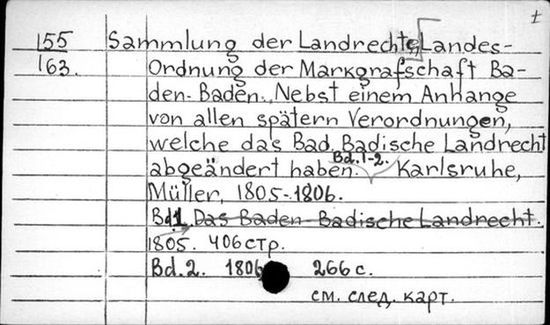 155
163.
Sammlung der Landrechte, Landes-
Ordnung der Markgrafschaft Ba-
den-Baden. Nebst einem Anhange
von allen spätern Verordnungen,
welche das Bad. Badische Landrecht
abgeändert haben. Bd. 1-2. Karlsruhe,
Müller, 1805-1806.
Bd 1. Das Baden-Badische Landrecht.
1805. 406 стр.
Bd. 2. 1806 266 с.
см. след. карт.